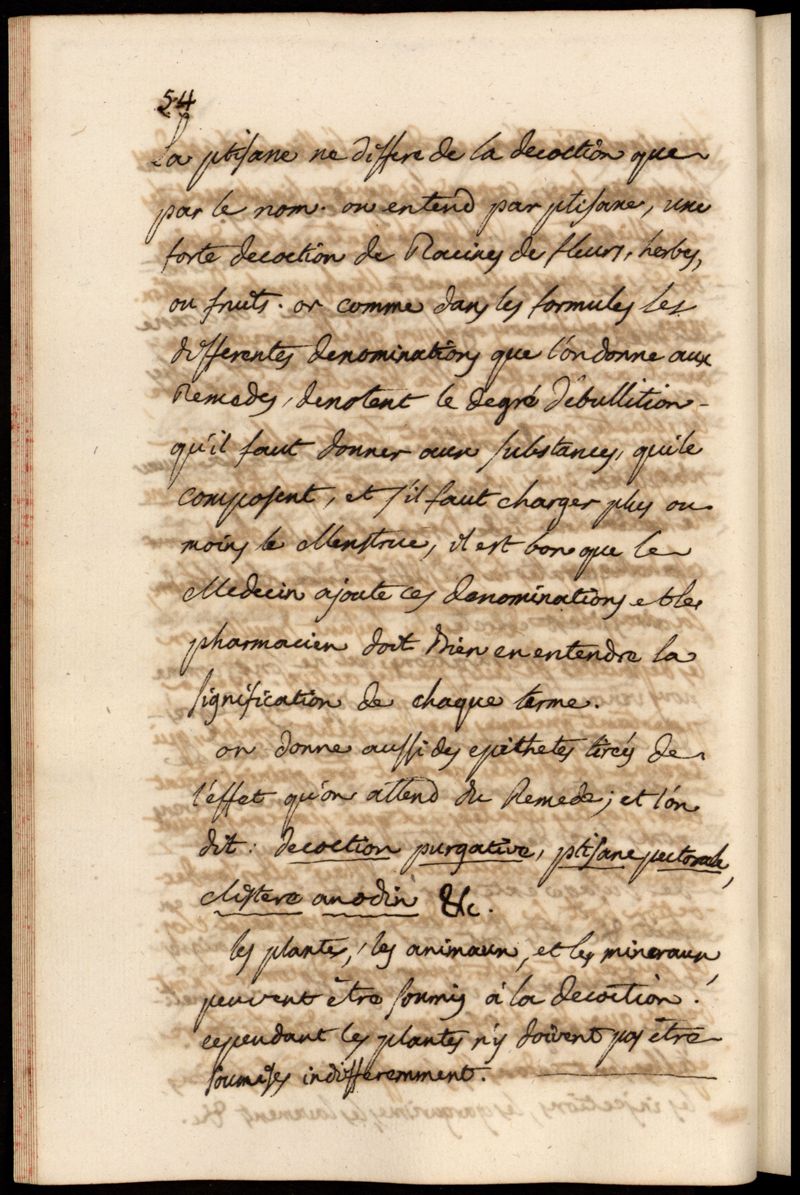 54
La ptisane ne differe de la decoction que
par le nom. on entend par ptisane, une
forte decoction de Racines de fleurs, herbes,
ou fruits. or comme dans les formules les
differentes denominations que l'on donne aux
Remedes, denotent le degré d'ébullition
qu'il faut donner aux substances, qui le
composent, et s'il faut charger plus ou
moins le Menstrue, il est bon que le
Medecin ajoute ces denominations et le
pharmacien doit bien en entendre la
signification de chaque terme.
on donne aussi des epithetes tirés de
l'effet qu'on attend du Remede; et l'on
dit: decoction purgative, ptisane pectorale,
clistere anodin &c.
les plantes, les animaux, et les mineraux,
peuvent être soumis à la decoction.
cependant les plantes n'y doivent pas être
soumises indifferemment.